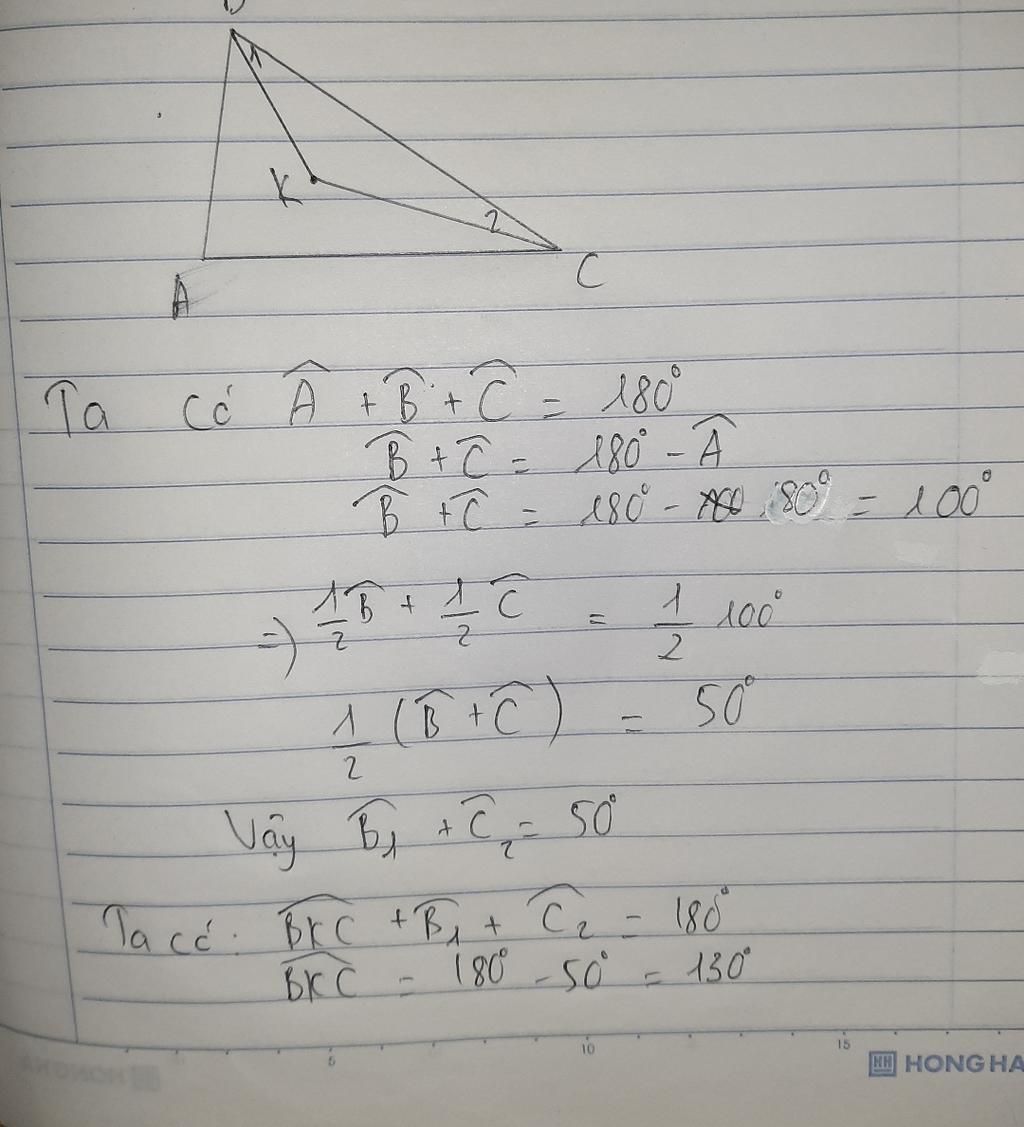 1
K
2
A
C
Ta có Â + B̂ + Ĉ = 180°
B̂ + Ĉ = 180° - Â
B̂ + Ĉ = 180° - 80° = 100°
=) 1/2 B̂ + 1/2 Ĉ = 1/2 100°
1/2 (B̂ + Ĉ) = 50°
Vậy B̂₁ + Ĉ₂ = 50°
Ta có: \widehat{BKC} + B̂₁ + Ĉ₂ = 180°
\widehat{BKC} = 180° - 50° = 130°
5 10 15
HONG HA